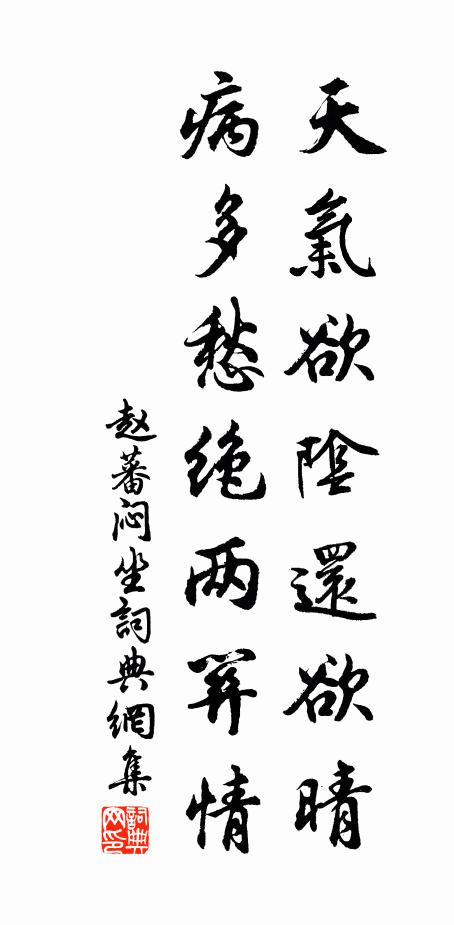 天氣欲陰還欲晴
病多愁绝两關情
赵蕃闷坐詞典網集
詞典网印